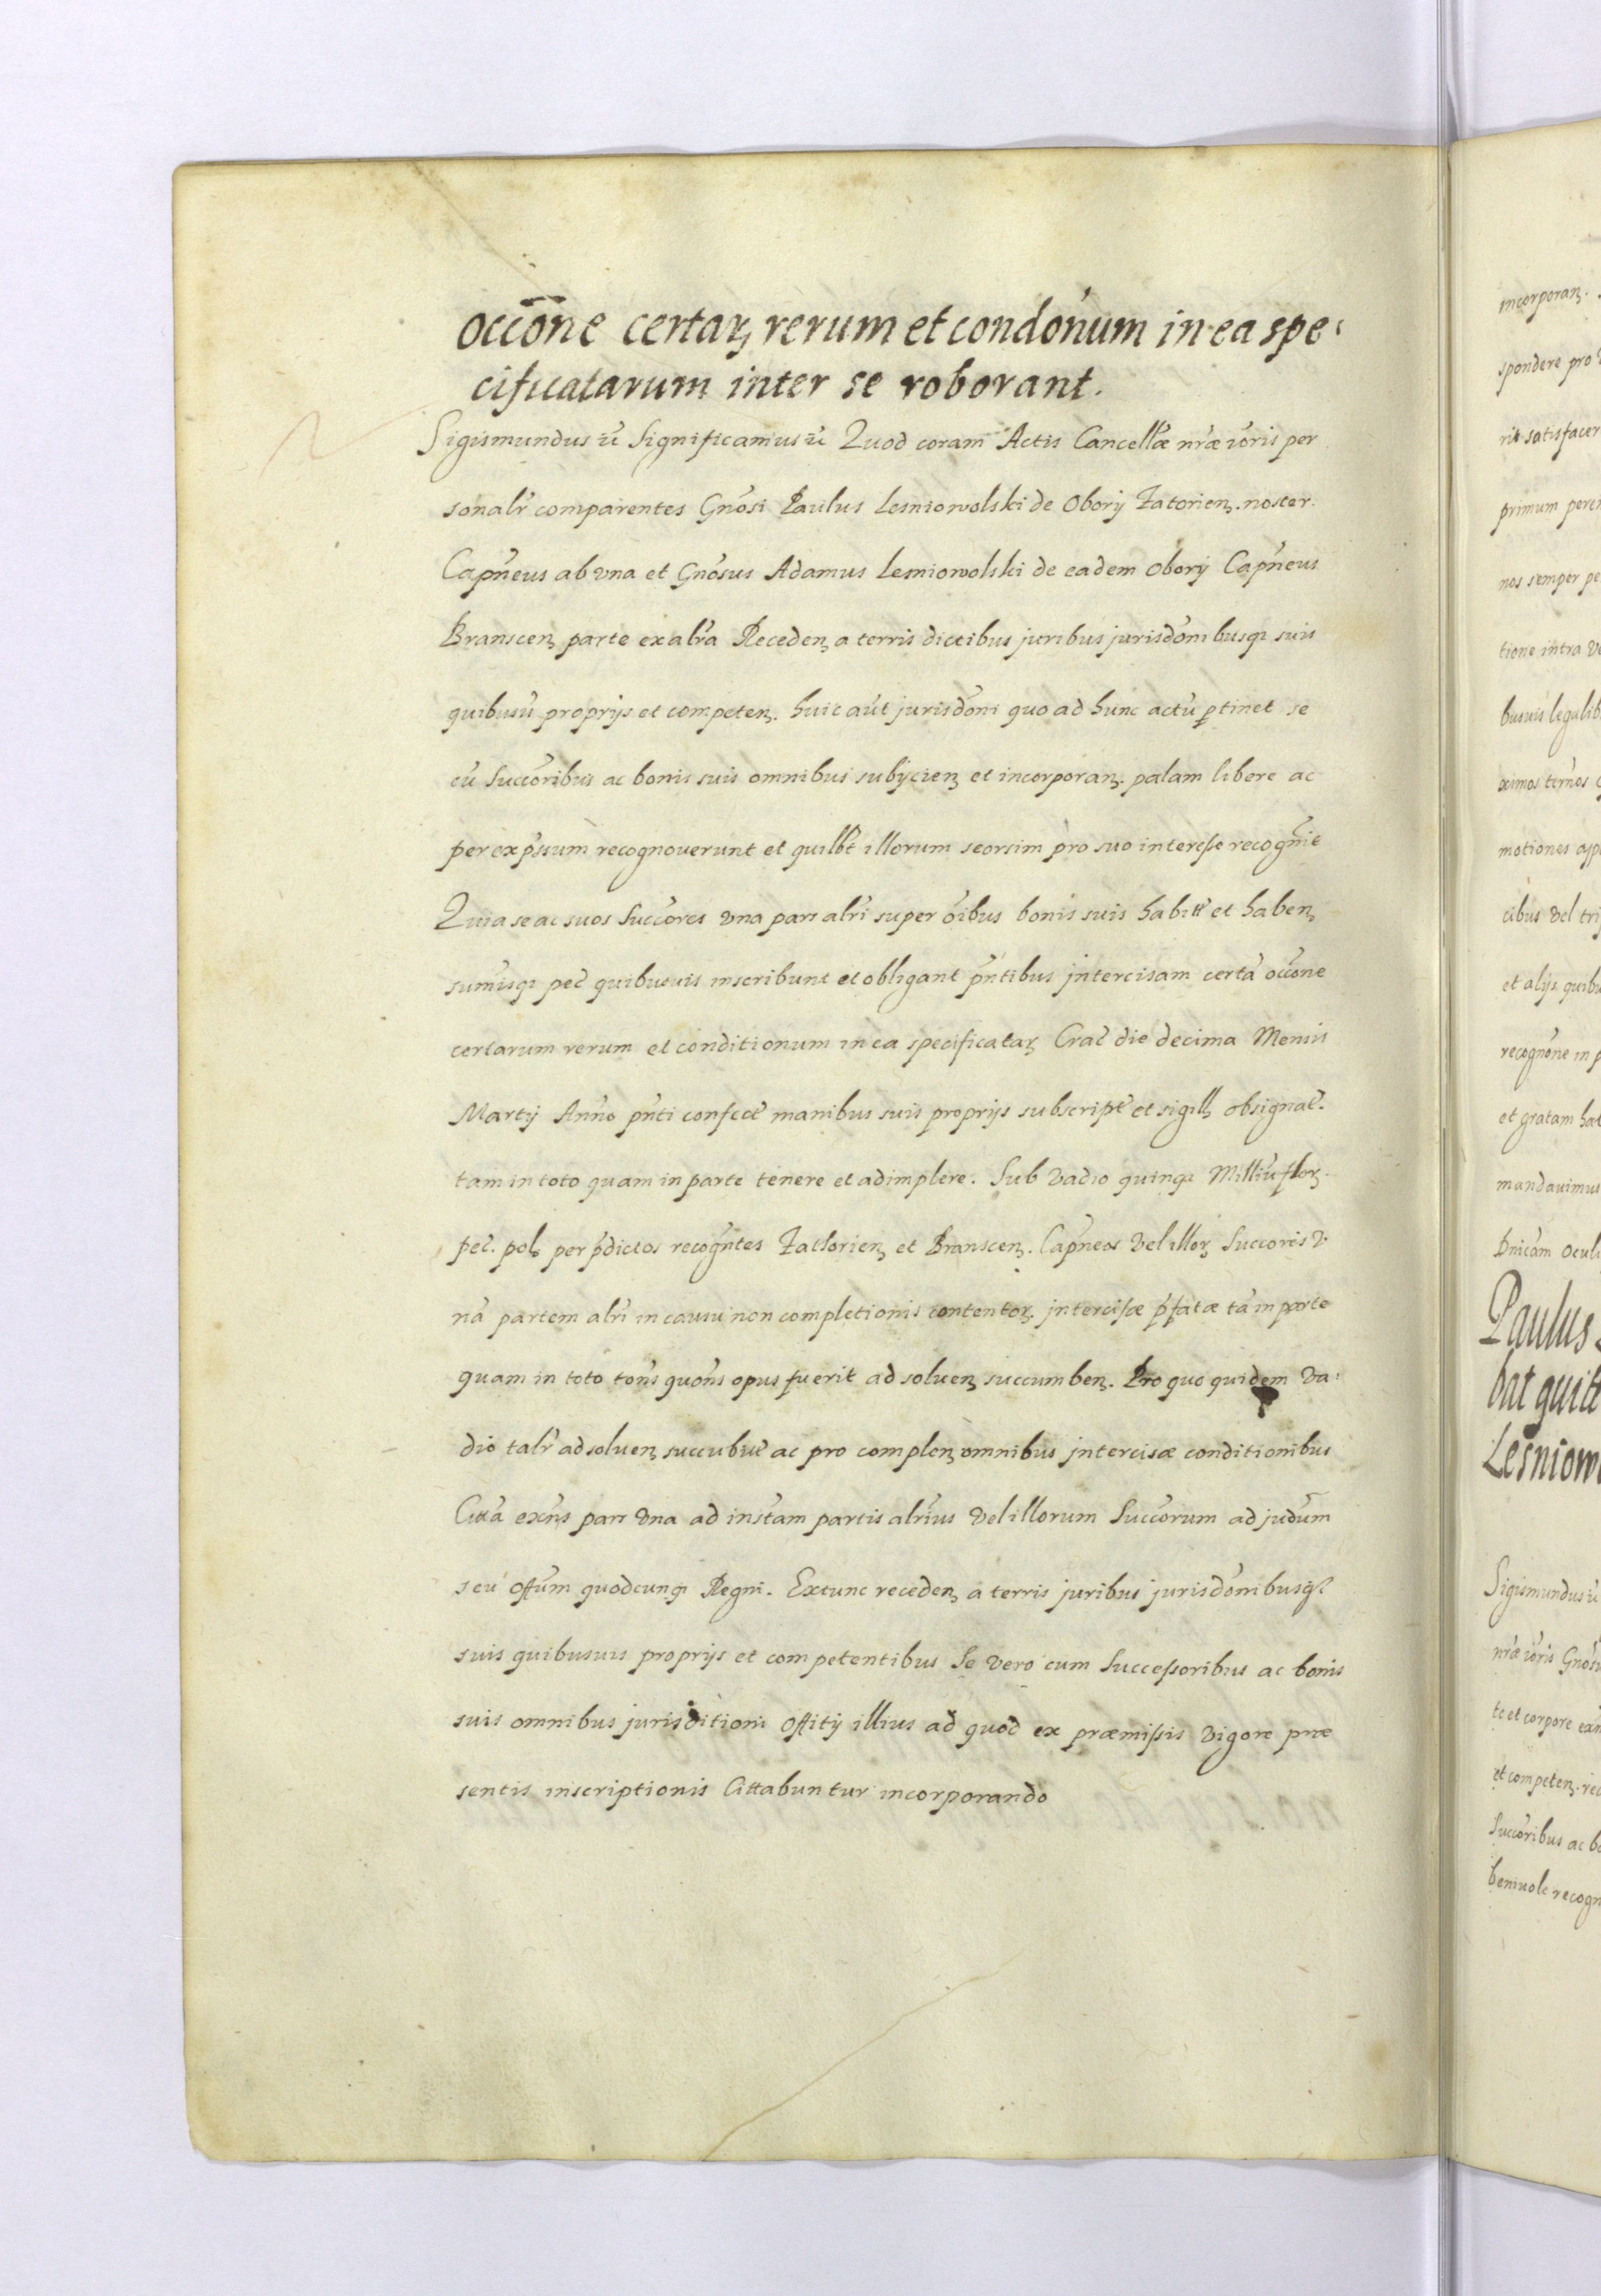 occone certarꝫ rerum et condonum in ea spe
cificatarum inter se roborant.
Sigismundus etc̃ Significamus etc̃ Quod coram Actis Cancellæ nr̃æ ĩoris per
sonalr̃ comparentes Gnõsi Paulus Lesniowolski de Oborÿ Zatorienꝫ. noster
Capñeus ab vna et Gnõsus Adamus Lesniowolski de eadem Oborÿ Capñeus
Branscenꝫ parte ex alr̃a Recedenꝫ a terris dictibus juribus jurisdõnibusqꝫ suis
quibusũ proprijs et competenꝫ. huic aũt jurisdõni quo ad hunc actũ ꝑtinet se
cũ Succõribus ac bonis suis omnibus subÿcienꝫ et incorporanꝫ. palam libere ac
per exp̃ssum recognouerunt et quilbt̃ illorum seorsim pro suo interesse recogñit
Quia se ac suos Succõres vna pars alr̃i super õibus bonis suis habitt̃ et habenꝫ
sum̃isqꝫ pec̃ quibusuis inscribunt et obligant pñtibus jntercisam certã occõne
certarum rerum et conditionum in ea specificatarꝫ Crac̃ die decima Mensis
Martÿ Anño pñti confect̃ manibus suis proprijs subscript̃ et sigillꝫ obsignat̃.
tam in toto quam in parte tenere et adimplere. Sub vadio quinqꝫ Milliũ florꝫ.
pec̃. polꝫ per p̃dictos recogñtes Zathorienꝫ et Branscenꝫ. Capñeos vel illorꝫ Succores v
nã partem alr̃i in casu non completionis contentorꝫ jntercisæ p̃fatæ tã in parte
quam in toto tõns quõns opus fuerit ad soluenꝫ succumbenꝫ. Pro quo quidem va:
dio talr̃ ad soluenꝫ succubitt̃ ac pro complenꝫ omnibus jntercisæ conditionibus
Citã exñs pars vna ad instãm partis alr̃ius vel illorum Succõrum ad judũm
seu Offũm quodcunqꝫ Regni. Extunc recedenꝫ a terris juribus jurisdõnibusqꝫ
suis quibusuis proprijs et competentibus Se vero cum Successoribus ac bonis
suis omnibus jurisditioni Offitÿ illius ad quod ex præmissis vigore præ
sentis inscriptionis Cittabuntur incorporando
incorporanꝫ.
spondere pro
rit satisfacer
primum perem
nos semper pe
tione intra
busuis legalib
ximos tern̄os
motiones app
cibus vel tri
et alijs quibu
recognõne in p
et gratam hab
mandauimus
Dnicam Oculi
Paulus
dat quitt
Lesniowo
Sigismundus etc̃
nr̃æ ĩoris Gnõsu
te et corpore
et competenꝫ. rec
Succõribus ac bo
beniuole recogn